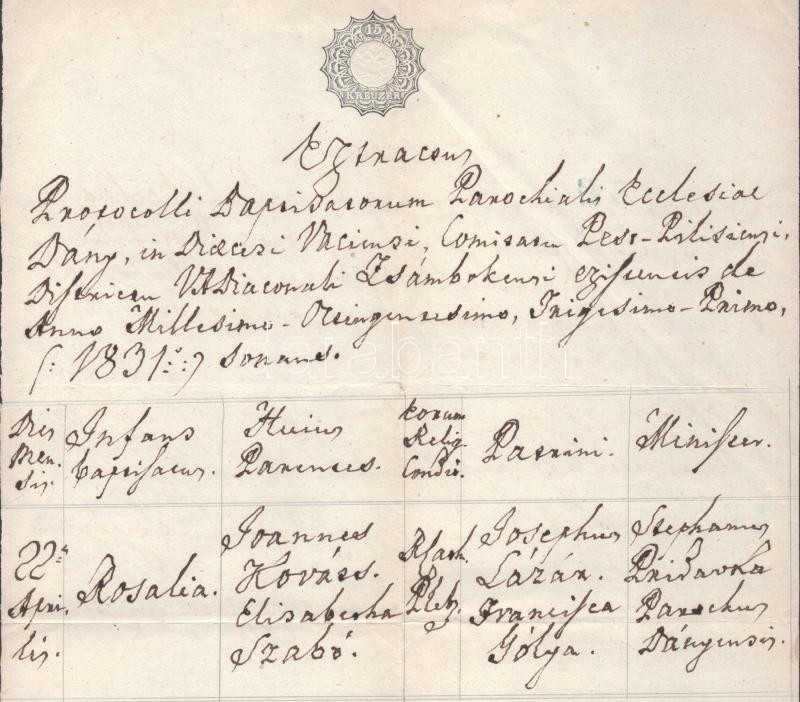 15
KREUZER
Extractus
Protocolli Baptisatorum Parochialis Ecclesiae
Dány, in Dioecesi Vaciensi, Comitatu Pest-Pilisiensi,
Districtu VADiaconali Zsámbokensi existentis de
Anno Millesimo-Octingentesimo, Trigesimo-Primo,
(: 1831 :) sonans.
darabanth
Dies Mensis
Infans baptisatus.
Huius Parentes.
Eorum Relig. Condit.
Patrini.
Minister.
22a Aprilis.
Rosalia.
Joannes
Kováts.
Elisabetha
Szabó.
Pleb.
Josephus
Lázár.
Francisca
Gólya.
Stephanus
Pridavka
Parochus
Dányensis.